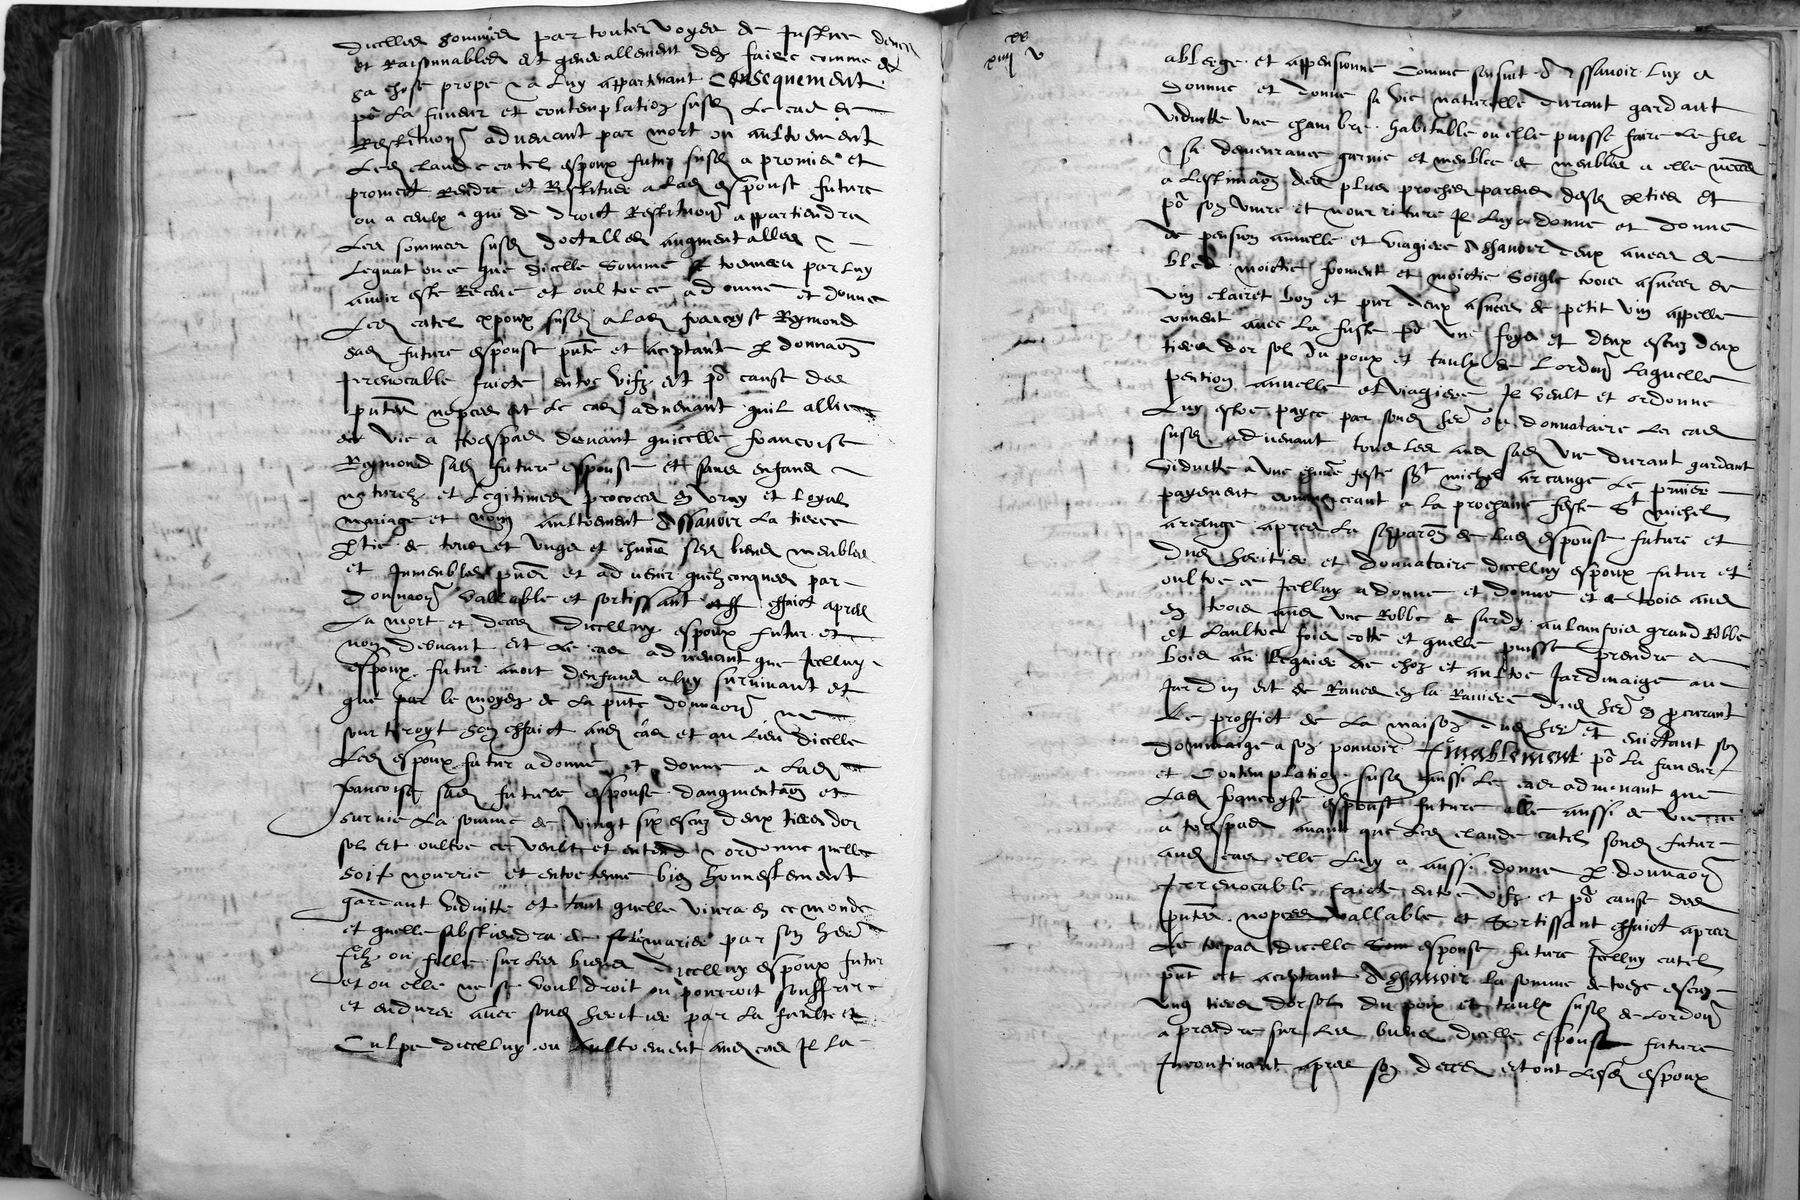 dicelles sommes par toutes voyes de Justice deues
et Raisonnables et generallement dez faire comme de
sa chose propre & a luy appartenant Consequement
po la faveur et contemplation susd Le cas de
Restitution advenant par mort ou aultrement
Led claude catel espoux futur susd a promis et
promect Rendre et Restituer a lad espouse future
ou a ceulx a qui de droict Restitution appartiendra
Les sommes susd doctalles augmentalles &
que dicelle somme par luy
avoir este Receue et oultre ce a donne et donne
Led catel expoux susd a lad francoyse Reymond
sad future espouse pnte et aceptante p donnaon
Irrevocable faicte entre vifz et po cause des
pntes nopces et Le cas advenant quil allie
de vie a trespas devant quicelle francoise
Reymond sad future espouse et sans enfans
naturelz et Legitimes procrees en vray et loyal
mariage et non aultrement Assavoir La tierce
ptie de tous et ungs et chuns ses biens meubles
et Immeubles pns et advenir quelzconques par
donnaon vallable et sortissant effaict apres
La mort et deces dicelluy espoux futur et
non devant et Le cas advenant que Icelluy
espoux futur avoit denfans a luy survivant et
que par le moyen de la pnte donnaon ne
sortiroyt son effaict aud cas et au lieu dicelle
Led espoux futur a donne et donne a lad
francoise sad future espouse daugmentaon et
survie La somme de vingt six escuz deux tiers dor
sol et oultre ce veult et entend & ordonne quelle
soit nourrie et entretenue bien honnestement
gardant viduitte et tant quelle vivra en ce monde
et quelle sabstiendra de se remarier par son her
filz ou fille sur les biens dicelluy espoux futur
et ou elle ne se vouldroit ou pourroit souffrire
et endurer avec sond heritier par la faulte et
Culpe dicelluy ou aultrement aud cas Il la
xx
xiiii v
ablerge et appensionne comme sensuit A ssavoir luy a
donne et donne sa vie naturelle durant gardant
viduitte une chambre habitable ou elle puisse faire Le feu
& sa demeurance garnie et meublee de meubles a elle neccess
a Lestimaon des plus proches parens desd pties Et
po son vivre et nourriture Il luy a donne et donne
de pension annuelle et viagiere Assavoir deux anees de
bled moictie froment et moictie soigle trois asnees de
vin clairet bon et pur deux asnees de petit vin appelle
couvent avec La fuste po une foys et deux escuz deux
tiers dor sol du poux et taulx de Lordon Laquelle
pention annuelle et viagiere Il veult et ordonne
Luy estre payee par sond her ou donnataire Le cas
susd advenant tous les ans sad vie durant gardant
viduitte a une chune feste St michel arcange Le pmier
payement commencant a la prochaine feste St michel
arcange apres La separaon de lad espouse future et
dud heritier et donnataire dicelluy espoux futur et
oultre ce Icelluy a donne et donne et de trois ans
en trois ans une Robbe de sardz aulcunfois grand Robbe
et Laultre fois cotte et quelle puisse prendre de
bois au Leguier de choz et aultre Jardinaige au
Jardin et de Raves en la Raviere dud her en procurant
Le proffict de La maison dud her et evictant son
dommaige a son pouvoir Semablement po la faveur
et Contemplation susd aussi Le cas advenant que
Lad francoyse espouse future alle aussi de vie
a trespas avant que Led claude catel sond futur
aud cas elle Luy a aussi donne p donnaon
Irrevocable faicte entre vifz et po cause des
pntes nopces vallable et Sortissant effaict apres
Le trepas dicelle espouse future Icelluy catel
pnt et aceptant Assavoir La somme de treze escuz
ung tiers dor sol du poux et taulx susd de Lordon
a prendre sur Les biens dicelle espouse future
Incontinant apres son deces et ont Lesd espoux